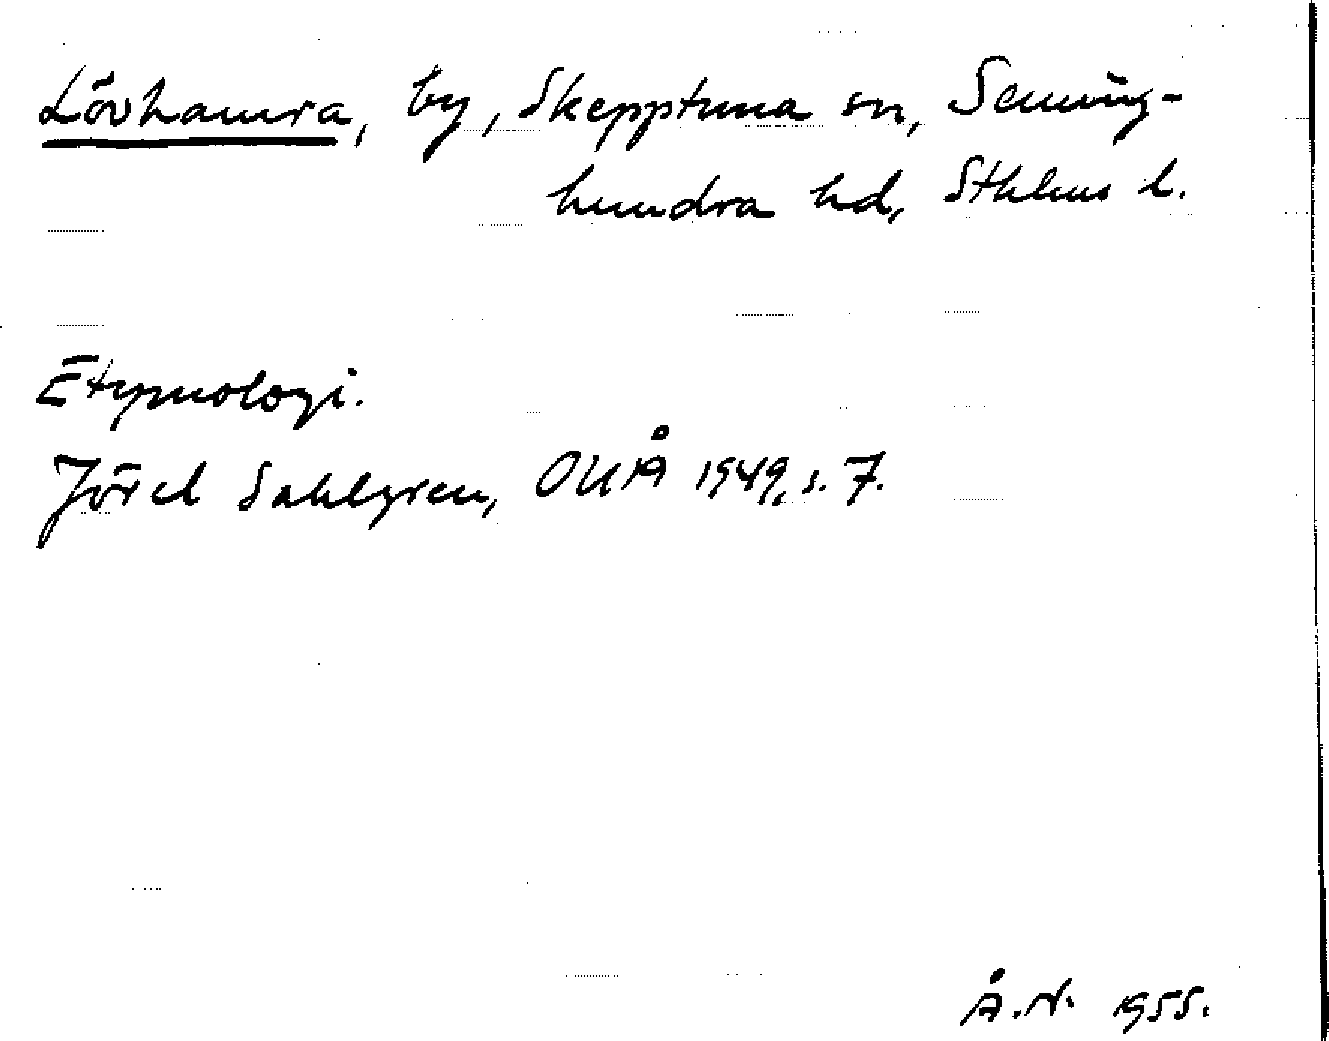 Lövhamra, by, Skepptuna sn, Seming-
hundra hd, Sthlms l.
Etymologi.
Jöran Sahlgren, OUÅ 1949, s. 7.
Å.N. 1955.